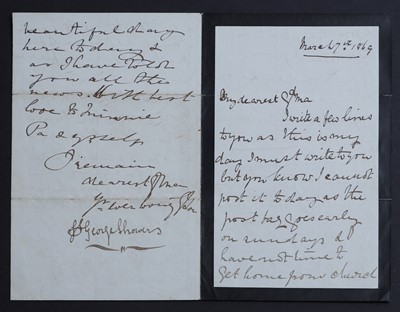 March 7th 1869
My dearest Ma
I write a few lines
to you as this is my
day I must write to you
but you know I cannot
post it to day as the
post bag goes early
on sundays &
have not time to
get home from church
beautiful day
here to day &
as I have told
you all the
news. With best
love to Minnie
Pa & yrself
I remain
dearest Ma
yr ever loving
St George